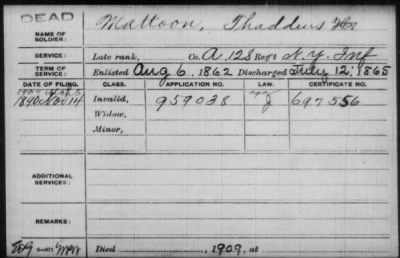 DEAD
NAME OF SOLDIER: Mattoon, Thaddeus
SERVICE: Late rank, Co. A, 128 Reg't N.Y. Inf
TERM OF SERVICE: Enlisted Aug 6, 1862 Discharged July 12, 1865
DATE OF FILING. CLASS. APPLICATION NO. LAW. CERTIFICATE NO.
1890 Nov 14 Invalid, 959038 J 697556
Widow,
Minor,
ADDITIONAL SERVICES:
REMARKS:
Died , 1909, at